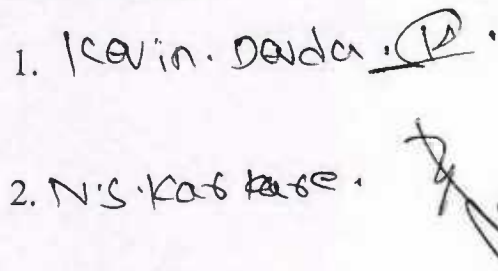 1. Kevin. Deuda. K.
2. N.S. Karkare.